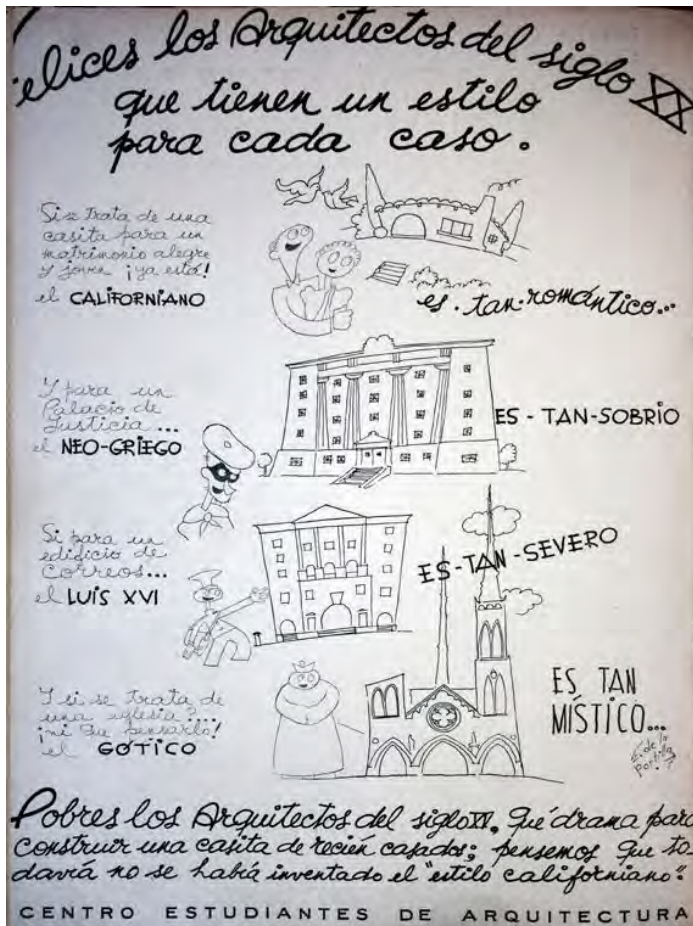 elices los Arquitectos del siglo XX
que tienen un estilo
para cada caso.
Si se trata de una
casita para un
matrimonio alegre
y joven ¡ya está!
el CALIFORNIANO
es.tan.romántico...
Y para un
Palacio de
Justicia...
el NEO-GRIEGO
ES - TAN-SOBRIO
Si para un
edificio de
Correos...
el LUIS XVI
ES-TAN-SEVERO
Y si se trata de
una iglesia....
¡ni que pensarlo!
el GÓTICO
ES TAN
MÍSTICO...
de la
Portilla
Pobres los Arquitectos del siglo XV, Qué drama para
construir una casita de recién casados; pensemos que to
davía no se había inventado el "estilo californiano".
CENTRO ESTUDIANTES DE ARQUITECTURA